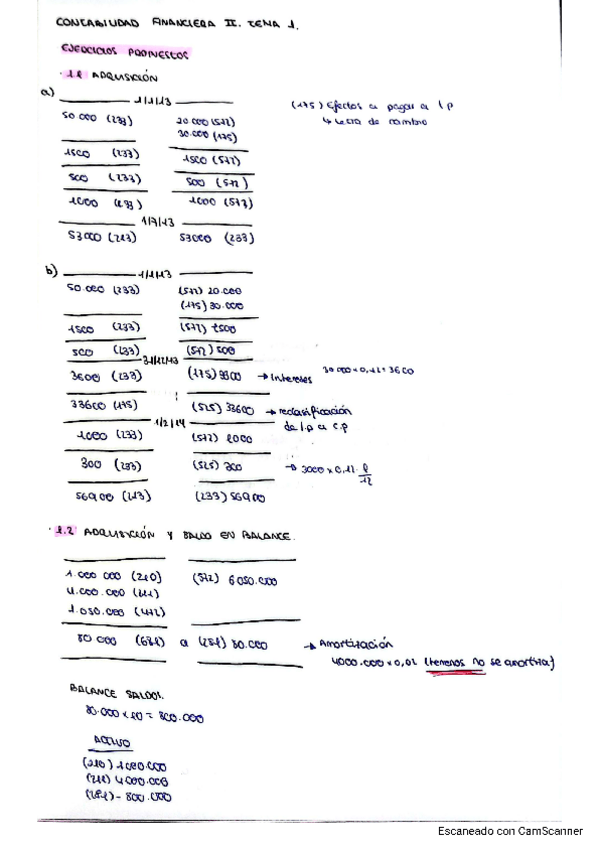 CONTABILIDAD FINANCIERA II. TEMA 1.
EJERCICIOS PROPUESTOS
· 1.1 ADQUISICIÓN
a) 1/1/13
50 000 (233) 20 000 (572)
30.000 (175)
(175) Efectos a pagar a l.p
↳ Letra de cambio
1500 (233) 1500 (572)
500 (233) 500 (572)
1000 (233) 1000 (572)
1/7/13
53000 (213) 53000 (233)
b) 1/1/13
50.000 (233) (572) 20.000
(175) 30.000
1500 (233) (572) 1500
500 (233) (572) 500
31/12/13
3600 (233) (175) 3600 → Intereses 30 000 x 0,12 = 3600
33600 (175) (525) 33600 → reclasificación
de l.p a c.p
1/2/14
1000 (233) (572) 1000
300 (233) (525) 300 → 3000 x 0,12 · 1/12
56900 (213) (233) 56900
· 1.2 ADQUISICIÓN Y SALDO EN BALANCE.
1.000 000 (210) (572) 6050.000
4.000.000 (211)
1.050.000 (472)
80 000 (681) a (281) 80.000 → Amortización
4000.000 x 0,02 (terrenos no se amortiza)
BALANCE SALDOS.
80.000 x 10 = 800.000
ACTIVO
(210) 1000.000
(211) 4000.000
(281) - 800.000
Escaneado con CamScanner